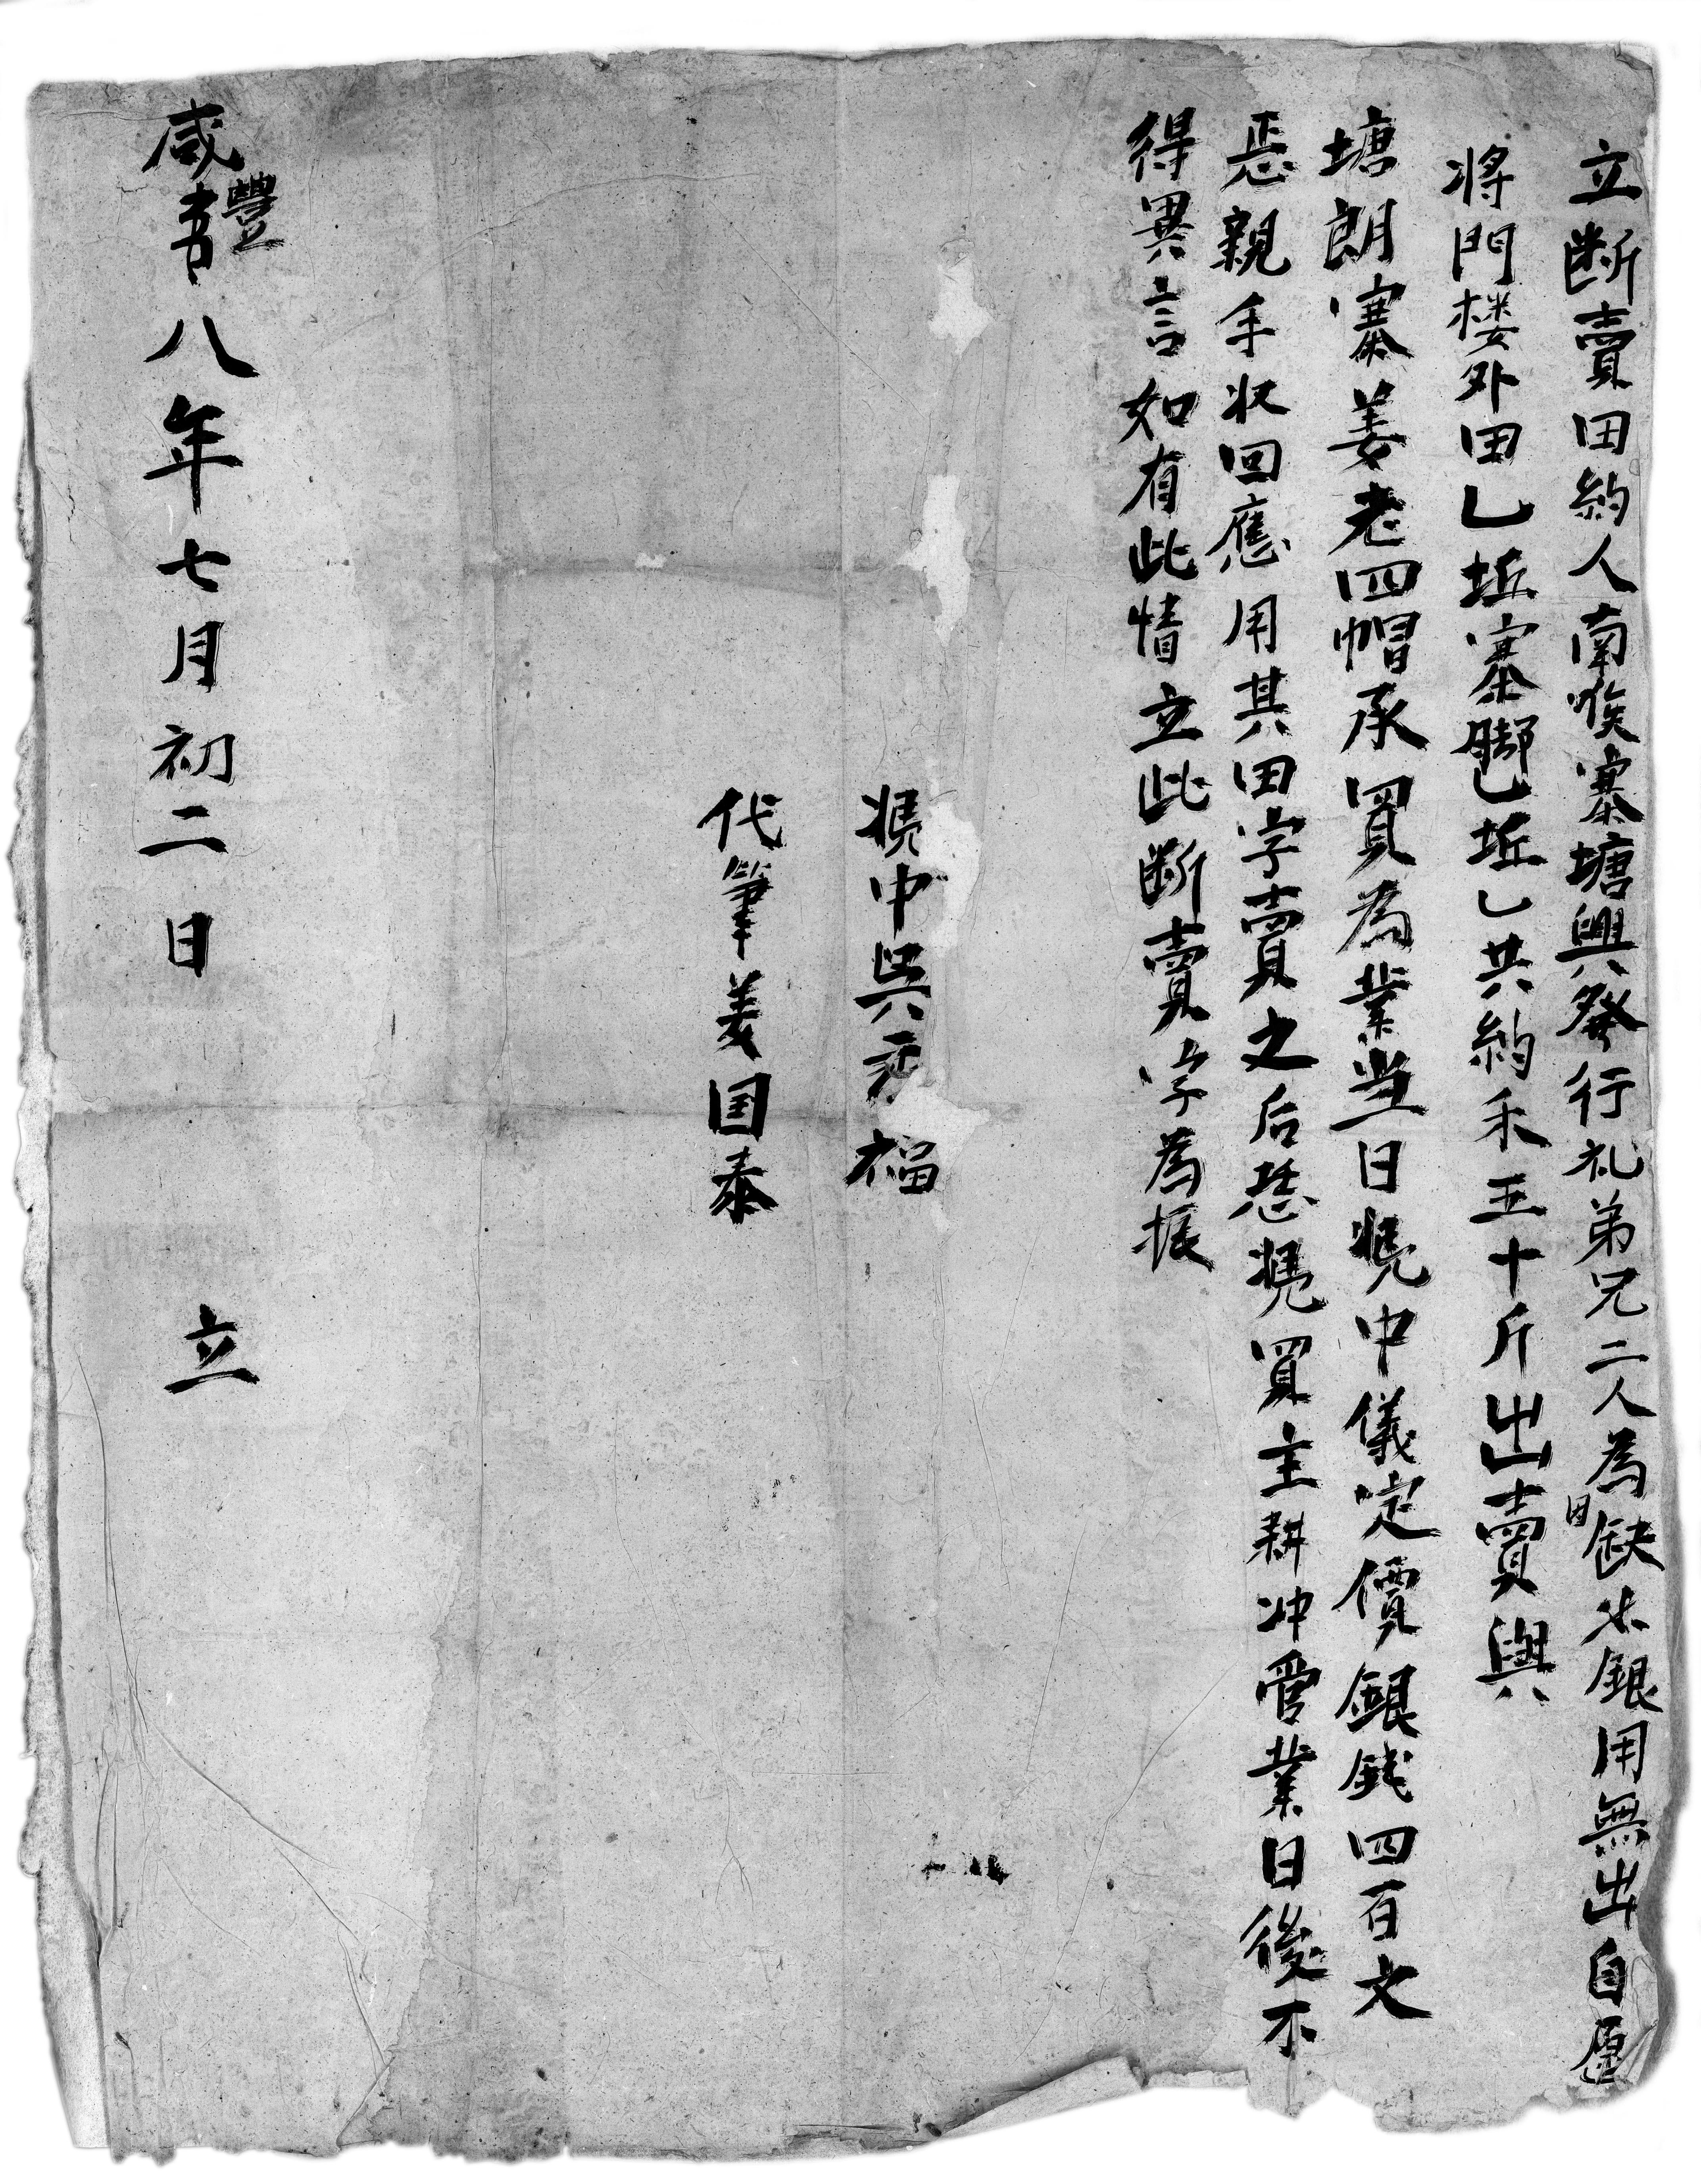 立断賣田約人南喉寨塘興發行礼弟兄二人為因缺少銀用無出自愿
将門楼外田乚坵寨脚乚坵乚共約禾五十斤出賣與
塘朗寨姜老四帽承買為業当日憑中儀定價銀錢四百文
恁親手收回應用其田字賣之后恁憑買主耕冲管業日後不
得異言如有此情立此断賣字為据
憑中吳 福
代筆姜国泰
咸豐八年七月初二日 立